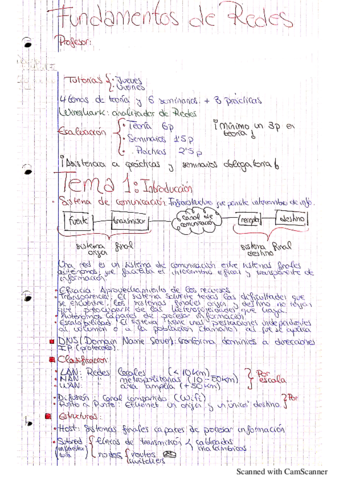 Fundamentos de Redes
Profesor:
Tutorías Jueves
Viernes
4 temas de teoría y 5 seminarios + 3 prácticas
Wireshark: analizador de Redes
Evaluación
· Teoría 6p
· Seminarios 1'5p
· Prácticas 2'5p
¡Mínimo un 3p en teoría!
¡Asistencia a prácticas y seminarios obligatoria!
Tema 1: Introducción
· Sistema de comunicación: Infraestructura que permite intercambio de info.
fuente transmisor canal de comunicación receptor destino
sistema final origen
sistema final destino
Una red es un sistema de comunicación entre sistemas finales
autónomos que facilita el intercambio eficaz y transparente de
información
· Eficacia: Aprovechamiento de los recursos
· Transparencia: El sistema resuelve todas las dificultades que
se encuentre. Los sistemas finales origen y destino no tienen
que preocuparse de las heterogeneidades que haya
· Autónomos: Capaces de procesar información
· Escalabilidad: El sistema tiene unas prestaciones independientes
al volumen o a la población (tamaño) al que se aplica
DNS (Domain Name Server): Transforma dominios a direcciones
IP (protocolo).
Clasificación:
· LAN: Redes locales (< 10km)
· MAN: " metropolitanas (10-50km)
· WAN: " área amplia (+50km)
Por escala
· Difusión: Canal compartido (Wifi)
· Punto a Punto: Ethernet un origen y un único destino
Por
Estructuras:
· Host: Sistemas finales capaces de procesar información
· Subred líneas de transmisión cableadas
inalámbricas
nodos routers